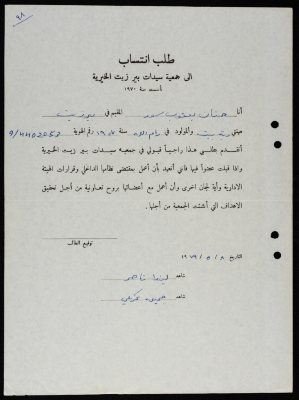 ٩٨
طلب انتساب
الى جمعية سيدات بير زيت الخيرية
تأسست سنة ١٩٧٠
أنا حنان يعقوب سعد المقيم في بيرزيت
مهنتي ربة بيت والمولود في رام الله سنة ١٩٥٦ رقم الهوية 9/4402053
أتقدم بطلبي هذا راجياً قبولي في جمعية سيدات بير زيت الخيرية
واذا قبلت عضواً فيها فاني أتقيد بأن أعمل بمقتضى نظامها الداخلي وقرارات الهيئة
الادارية وأية لجان اخرى وأن أعمل مع أعضائها بروح تعاونية من أجل تحقيق
الاهداف التي أنشئت الجمعية من أجلها.
توقيع الطالب
التاريخ ٨ / ٥ / ١٩٧٩
شاهد ليندا ناصر
شاهد جميلة